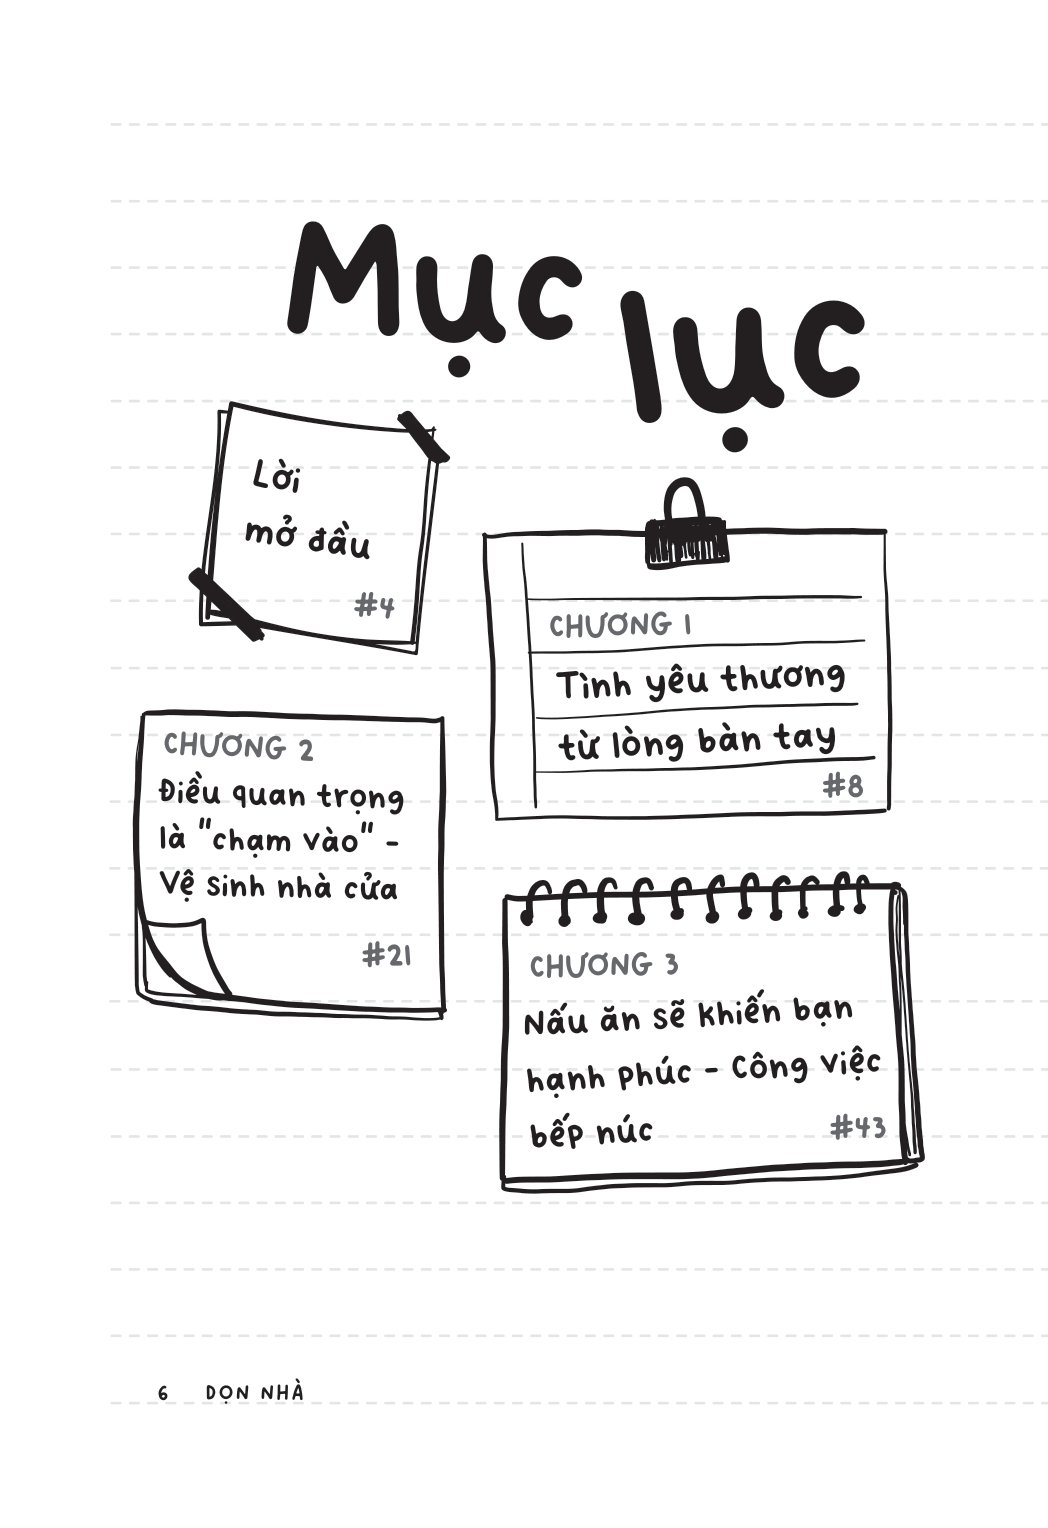 Mục
lục
Lời
mở đầu
#4
CHƯƠNG 1
Tình yêu thương
từ lòng bàn tay
#8
CHƯƠNG 2
Điều quan trọng
là "chạm vào" -
Vệ sinh nhà cửa
#21
CHƯƠNG 3
Nấu ăn sẽ khiến bạn
hạnh phúc - Công việc
bếp núc
#43
6 DỌN NHÀ